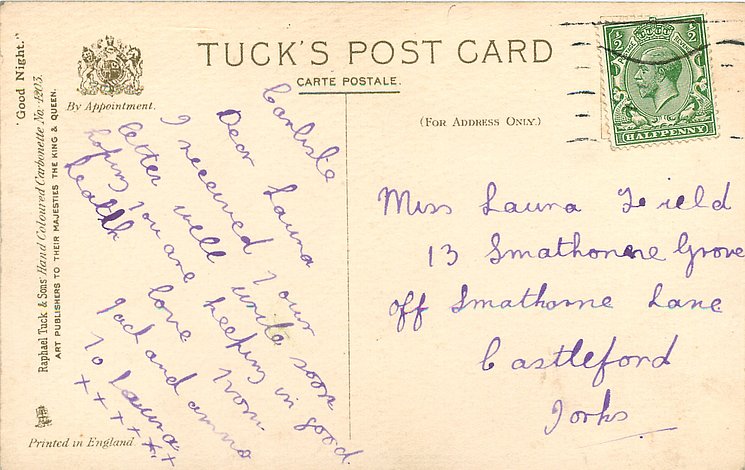 "Good Night."
Raphael Tuck & Sons' Hand Coloured Carbonette No. 4203.
ART PUBLISHERS TO THEIR MAJESTIES THE KING & QUEEN.
By Appointment.
Printed in England
TUCK'S POST CARD
CARTE POSTALE.
(FOR ADDRESS ONLY.)
1/2 1/2
POSTAGE REVENUE
HALFPENNY
Carlisle
Dear Laura
I received your
letter well write soon
hoping you are keeping in good
health love from
Jack and
to Laura
x x x x x x x
Miss Laura Field
13 Smathorne Grove
off Smathorne Lane
Castleford
Yorks